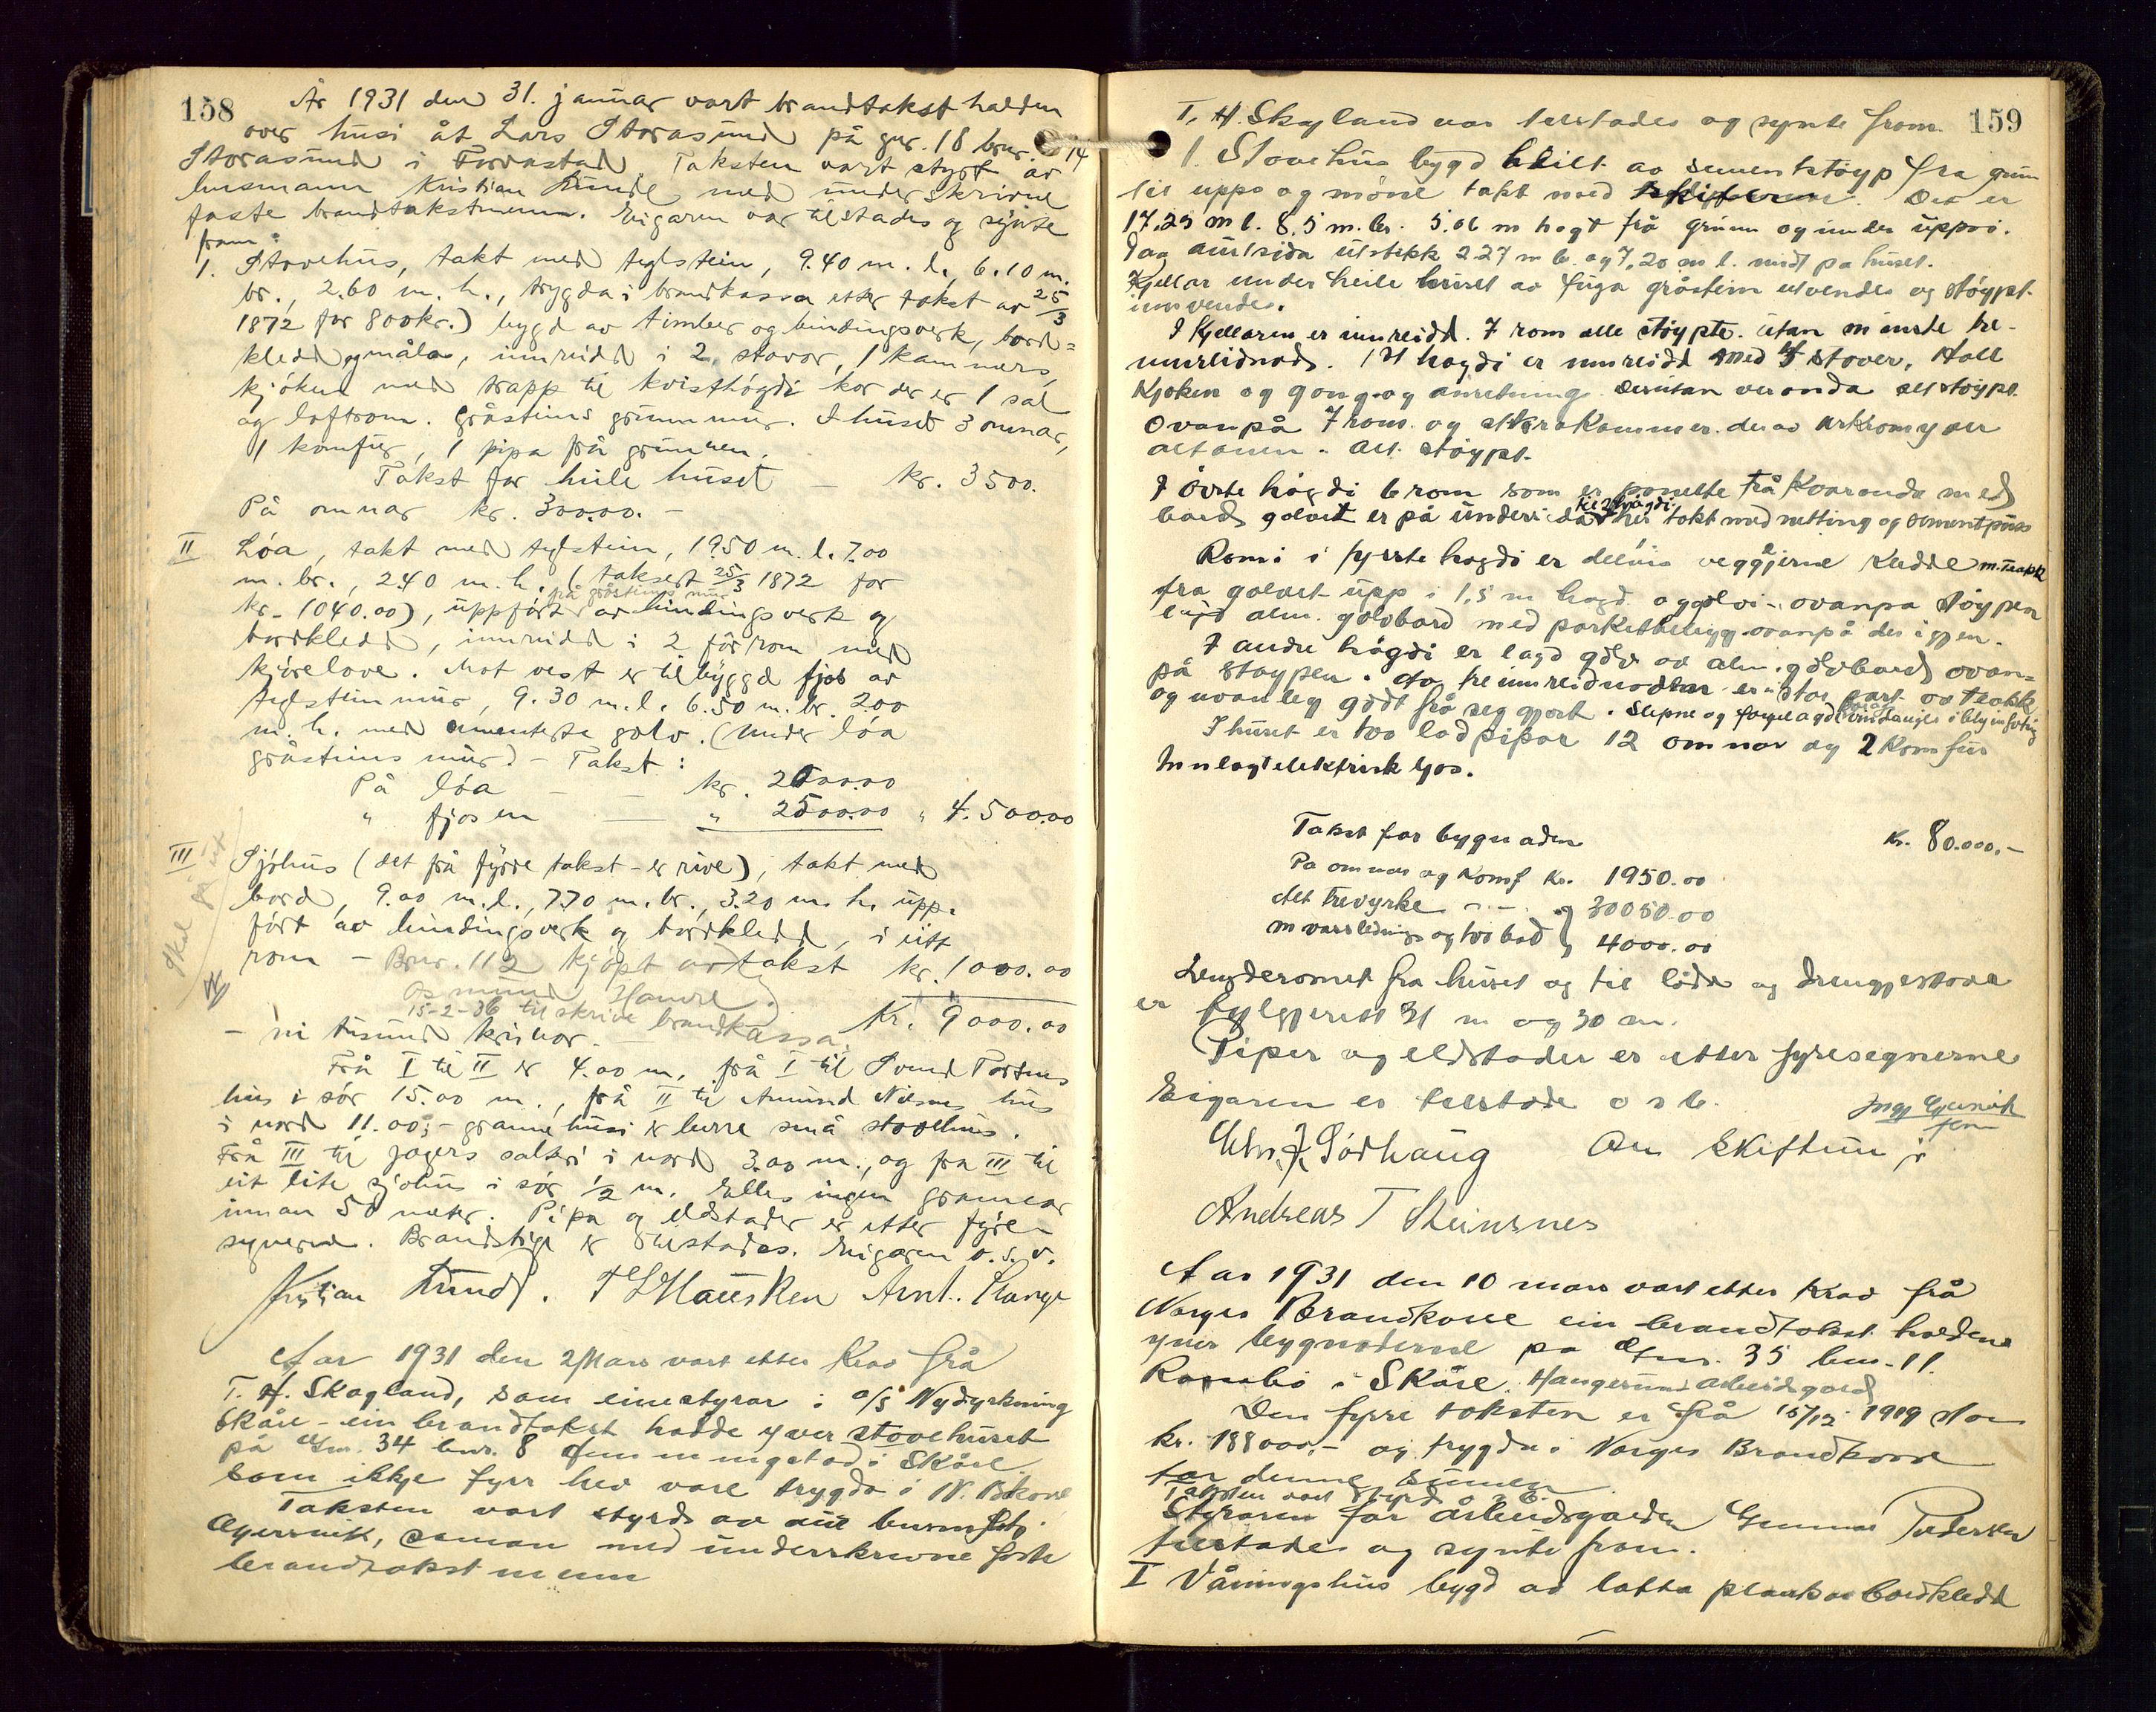 158
År 1931 den 31. januar vart brandtakst halden
over husi åt Lars Storasund på gnr. 18 bnr. 14
Storasund i Torvastad. Taksten vart styrt av
husmann Kristian Lunde med underskrivne
faste brandtakstmenn. Eigaren var tilstades og synte
fram:
1. Stovehus, takt med teglstein, 9.40 m. l., 6.10 m.
br., 2.60 m. h., trygda i brandkassa etter takst av 25/3
1872 for 800 kr.) bygd av timber og bindingsverk, bord=
kledd og måla, innreidd i 2 stovor, 1 kammers,
kjøken med trapp til kvisthøgdi kor der er 1 sal
og loftrom. Gråsteins grunnmur. I huset 3 omnar,
1 komfyr, 1 pipa frå grunnen.
Takst for heile huset — kr. 3500.
På omnar kr. 300.00. -
II Løa, takt med teglstein, 19.50 m. l. 7.00
m. br., 2.40 m. h. (taksert 25/3 1872 for
på gråsteins mur
kr. 1040.00), uppført av bindingsverk og
bordkledd, innreidd i 2 fôrrom med
kjørelove. Mot vest er tilbyggd fjos av
teglsteinmur, 9.30 m. l. 6.50 m. br. 2.00
m. h. med sementerte golv. (Under løa
gråsteins mur) - Takst:
På løa — — kr. 2000.00
" fjosen — " 2500.00 " 4.500.00
III Sjøhus (det frå fyrre takst - er rive), takt med
bord, 9.00 m. l., 7.70 m. br., 3.20 m. h. upp-
ført av bindingsverk og bordkledd, i eitt
rom - Bnr. 112 kjøpt av takst kr. 1000.00
Kr. 9000.00
15-2-36 til skrive brandkassa.
- ni tusund krunor. -
Frå I til II er 4.00 m, frå I til Svend
hus i sør 15.00 m., frå II til Amund Nilsens hus
i nord 11.00; - grannehusi er berre små stovehus.
Frå III til Jagers salteri i nord 3.00 m., og fra III til
eit lite sjøhus i sør 1/2 m. Elles ingen grannar
innan 50 meter. Pipa og eldstader er etter fyre-
segnerne. Brandstige er tilstades. Eigaren o.s.v.
Kristian Lunde. Arnt. Stange
Aar 1931 den 2 Mars vart etter Krav frå
T. H. Skagland, som einestyrar i a/s Nydyrkning
Skåre - ein brandtakst hadde yver stovehuset
på Gnr. 34 bnr. 8 i Skåre.
som ikkje fyrr hev vore trygda i N. Bkasse
Taksten vart styrd av
saman med underskrivne faste
brandtakstmenn
159
T. H. Skagland var tilstades og synte fram.
1. Stovehus bygd heilt av sementstøyp fra grun
til upps og møne takt med . Det er
17.25 m l. 8,5 m. br. 5.06 m høgt frå grunn og under uppsi.
utstekk 2.27 m b. og 7,20 m l. midt på huset.
Kjellar under heile huset av fuga gråstein utvendes og støypt
innvendes.
I Kjellaren er innreidd 7 rom alle støypte. Utan minste tre-
innreidnad. I 1st høgdi er innreidd med stover, Hall
Kjøken og gong og anretning. Desutan veranda alt støypt.
Ovanpå 7 rom og
altanen - alt støypt.
I øvste høgdi 6 rom som er panelte frå kvarande med
til 2 høgdi
bord, golvet er på undersida takt med netting og sementpuss
Romi i fyrste høgdi er delvis veggjerne kledde m. teakk
fra golvet upp i 1,5 m høgd og golvi ovanpå støypen
lagd alm. golvbord med parketbelegg ovanpå der igjen.
I andre høgdi er lagd golv av alm. golvbord ovan=
på støypen. er i stor part av teakk
og uvanleg godt frå seg gjort.
I huset er too ladpipor 12 omnar og 2 Komfur
Innlagt elektrisk ljos.
Takst for bygnaden Kr. 80.000.-
På omnar og Komf Kr. 1950.00
alt treverke - - " 30050.00
m vassledning og two bad " 4000.00
Lengderomet fra huset og til løda og drengjestova
er fylgjerett 31 m og 30 m.
Piper og eldstader er etter fyresegnerne
Eigaren er tilstade o s v.
Chr. J. Sørhaug
Andreas T Steinsnes
Aar 1931 den 10 mars vart etter Krav frå
Norges Brandkasse ein brandtakst haldene
yver bygnaderne på Gnr. 35 bnr. 11.
i Skåre. Haugesund arbeidsgard
Den fyrre taksten er frå 15/12 1919 stor
kr. 188000.- og trygda i Norges Brandkasse
for denne summen
Taksten vart styrd
Styraren for arbeidsgarden Gunnar Pedersen
tilstades og synte fram.
I Våningshus bygd av lafta plankar bordkledd